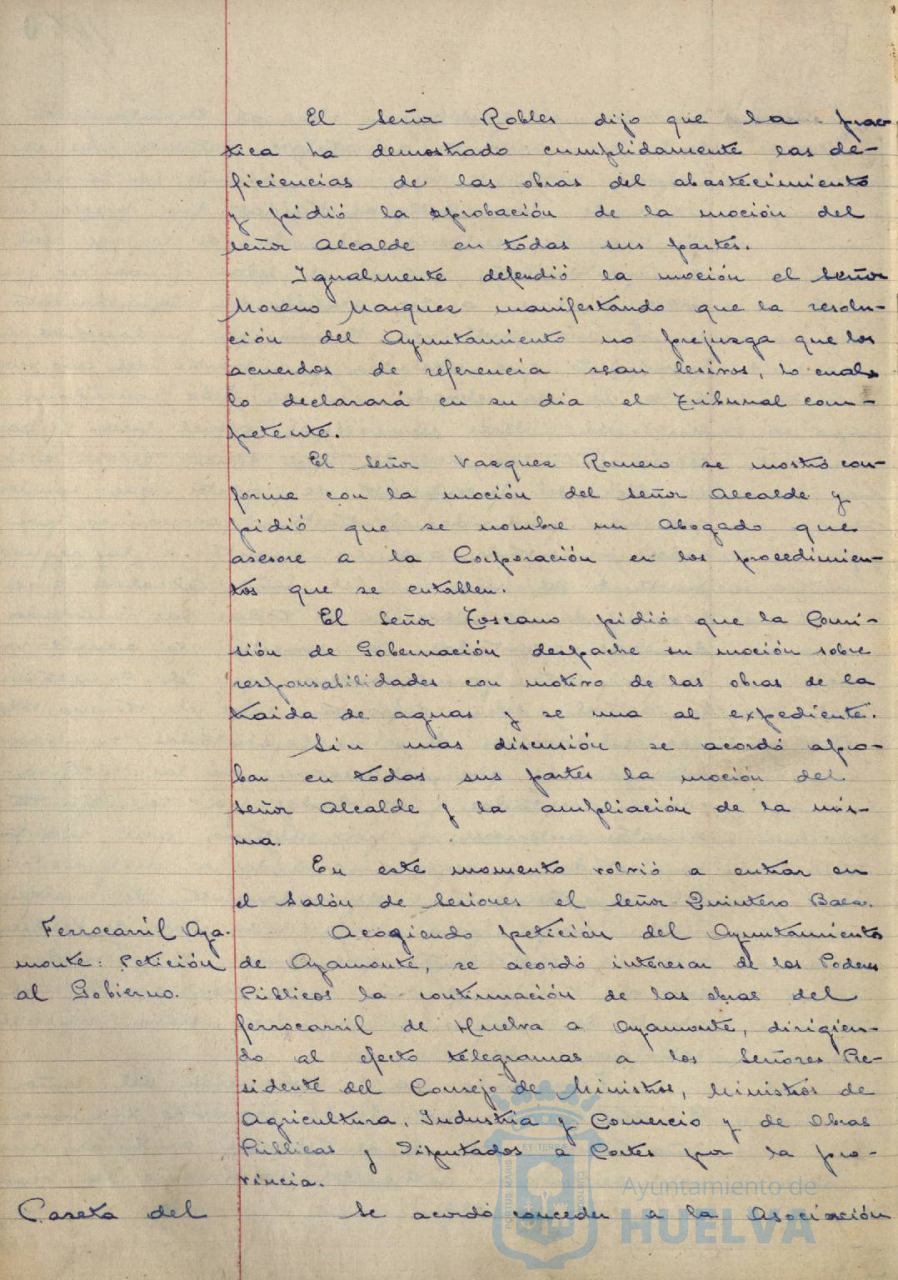 El señor Robles dijo que la prac-
tica ha demostrado cumplidamente las de-
ficiencias de las obras del abastecimiento
y pidió la aprobación de la moción del
señor Alcalde en todas sus partes.
Igualmente defendió la moción el señor
Moreno Marquez manifestando que la resolu-
ción del Ayuntamiento no prejuzga que los
acuerdos de referencia sean lesivos, lo cual
lo declarará en su dia el Tribunal com-
petente.
El señor Vazquez Romero se mostró con-
forme con la moción del señor Alcalde y
pidió que se nombre un Abogado que
asesore a la Corporación en los procedimien-
tos que se entablen.
El señor Toscano pidió que la Comi-
sión de Gobernación despache su moción sobre
responsabilidades con motivo de las obras de la
traida de aguas y se una al expediente.
Sin mas discusión se acordó apro-
bar en todas sus partes la moción del
señor Alcalde y la ampliación de la mis-
ma.
En este momento volvió a entrar en
el Salón de Sesiones el señor Quintero Baez.
Ferrocarril Aya-
monte: Petición
al Gobierno.
Acogiendo petición del Ayuntamiento
de Ayamonte, se acordó interesar de los Poderes
Públicos la continuación de las obras del
ferrocarril de Huelva a Ayamonte, dirigien-
do al efecto telegramas a los Señores Pre-
sidente del Consejo de Ministros, Ministros de
Agricultura, Industria y Comercio y de Obras
Públicas y Diputados a Cortes por la pro-
vincia.
Caseta del
Se acordó conceder a la Asociación
Ayuntamiento de
HUELVA